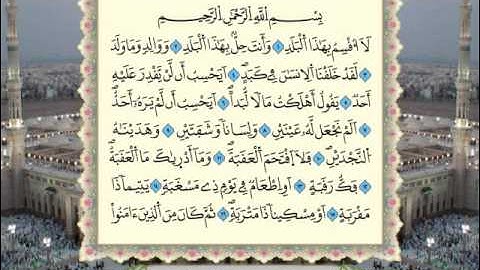 بِسْمِ اللَّهِ الرَّحْمَٰنِ الرَّحِيمِ
لَا أُقْسِمُ بِهَٰذَا الْبَلَدِ ۝١ وَأَنتَ حِلٌّ بِهَٰذَا الْبَلَدِ ۝٢ وَوَالِدٍ وَمَا وَلَدَ
۝٣ لَقَدْ خَلَقْنَا الْإِنسَانَ فِي كَبَدٍ ۝٤ أَيَحْسَبُ أَن لَّن يَقْدِرَ عَلَيْهِ
أَحَدٌ ۝٥ يَقُولُ أَهْلَكْتُ مَالًا لُّبَدًا ۝٦ أَيَحْسَبُ أَن لَّمْ يَرَهُ أَحَدٌ
۝٧ أَلَمْ نَجْعَل لَّهُ عَيْنَيْنِ ۝٨ وَلِسَانًا وَشَفَتَيْنِ ۝٩ وَهَدَيْنَاهُ
النَّجْدَيْنِ ۝١٠ فَلَا اقْتَحَمَ الْعَقَبَةَ ۝١١ وَمَا أَدْرَاكَ مَا الْعَقَبَةُ
۝١٢ فَكُّ رَقَبَةٍ ۝١٣ أَوْ إِطْعَامٌ فِي يَوْمٍ ذِي مَسْغَبَةٍ ۝١٤ يَتِيمًا ذَا
مَقْرَبَةٍ ۝١٥ أَوْ مِسْكِينًا ذَا مَتْرَبَةٍ ۝١٦ ثُمَّ كَانَ مِنَ الَّذِينَ آمَنُوا